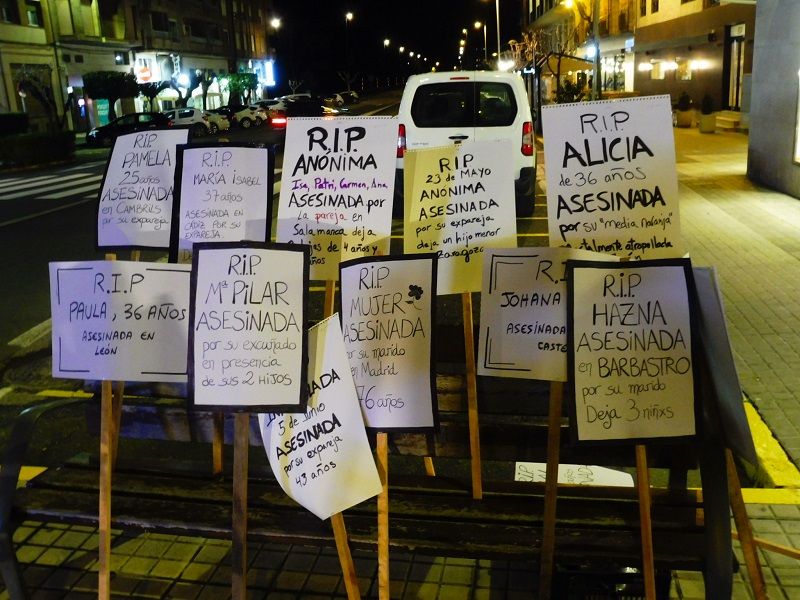 R.I.P
PAMELA
25 años
ASESINADA
en CAMBRILS
por su expareja
R.I.P.
MARÍA ISABEL
37 años
ASESINADA EN
CÁDIZ POR SU
EXPAREJA
R.I.P.
ANÓNIMA
Isa, Patri, Carmen, Ana
ASESINADA por
la pareja en
Salamanca deja
2 hijas de 4 años y
RIP
23 de MAYO
ANÓNIMA
ASESINADA
por su expareja
deja un hijo menor
Zaragoza
R.I.P.
ALICIA
de 36 años
ASESINADA
por su "media naranja"
atropellada
R.I.P
PAULA, 36 AÑOS
ASESINADA EN
LEÓN
R.I.P.
Mª PILAR
ASESINADA
por su excuñado
en presencia
de sus 2 HIJOS
5 de JUNIO
ASESINADA
por su expareja
49 años
R.I.P.
MUJER
ASESINADA
por su marido
en Madrid
76 años
R.I
JOHANA
ASESINADA
CASTE
R.I.P.
HAZNA
ASESINADA
en BARBASTRO
por su marido
Deja 3 niñxs